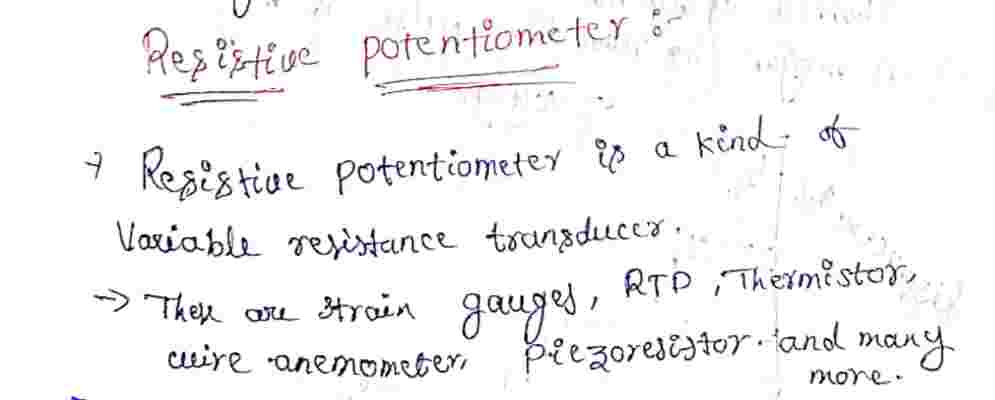 Resistive potentiometer :-
→ Resistive potentiometer is a kind of
Variable resistance transducer.
→ These are strain gauges, RTD, Thermistor,
wire anemometer, Piezoresistor. and many
more.